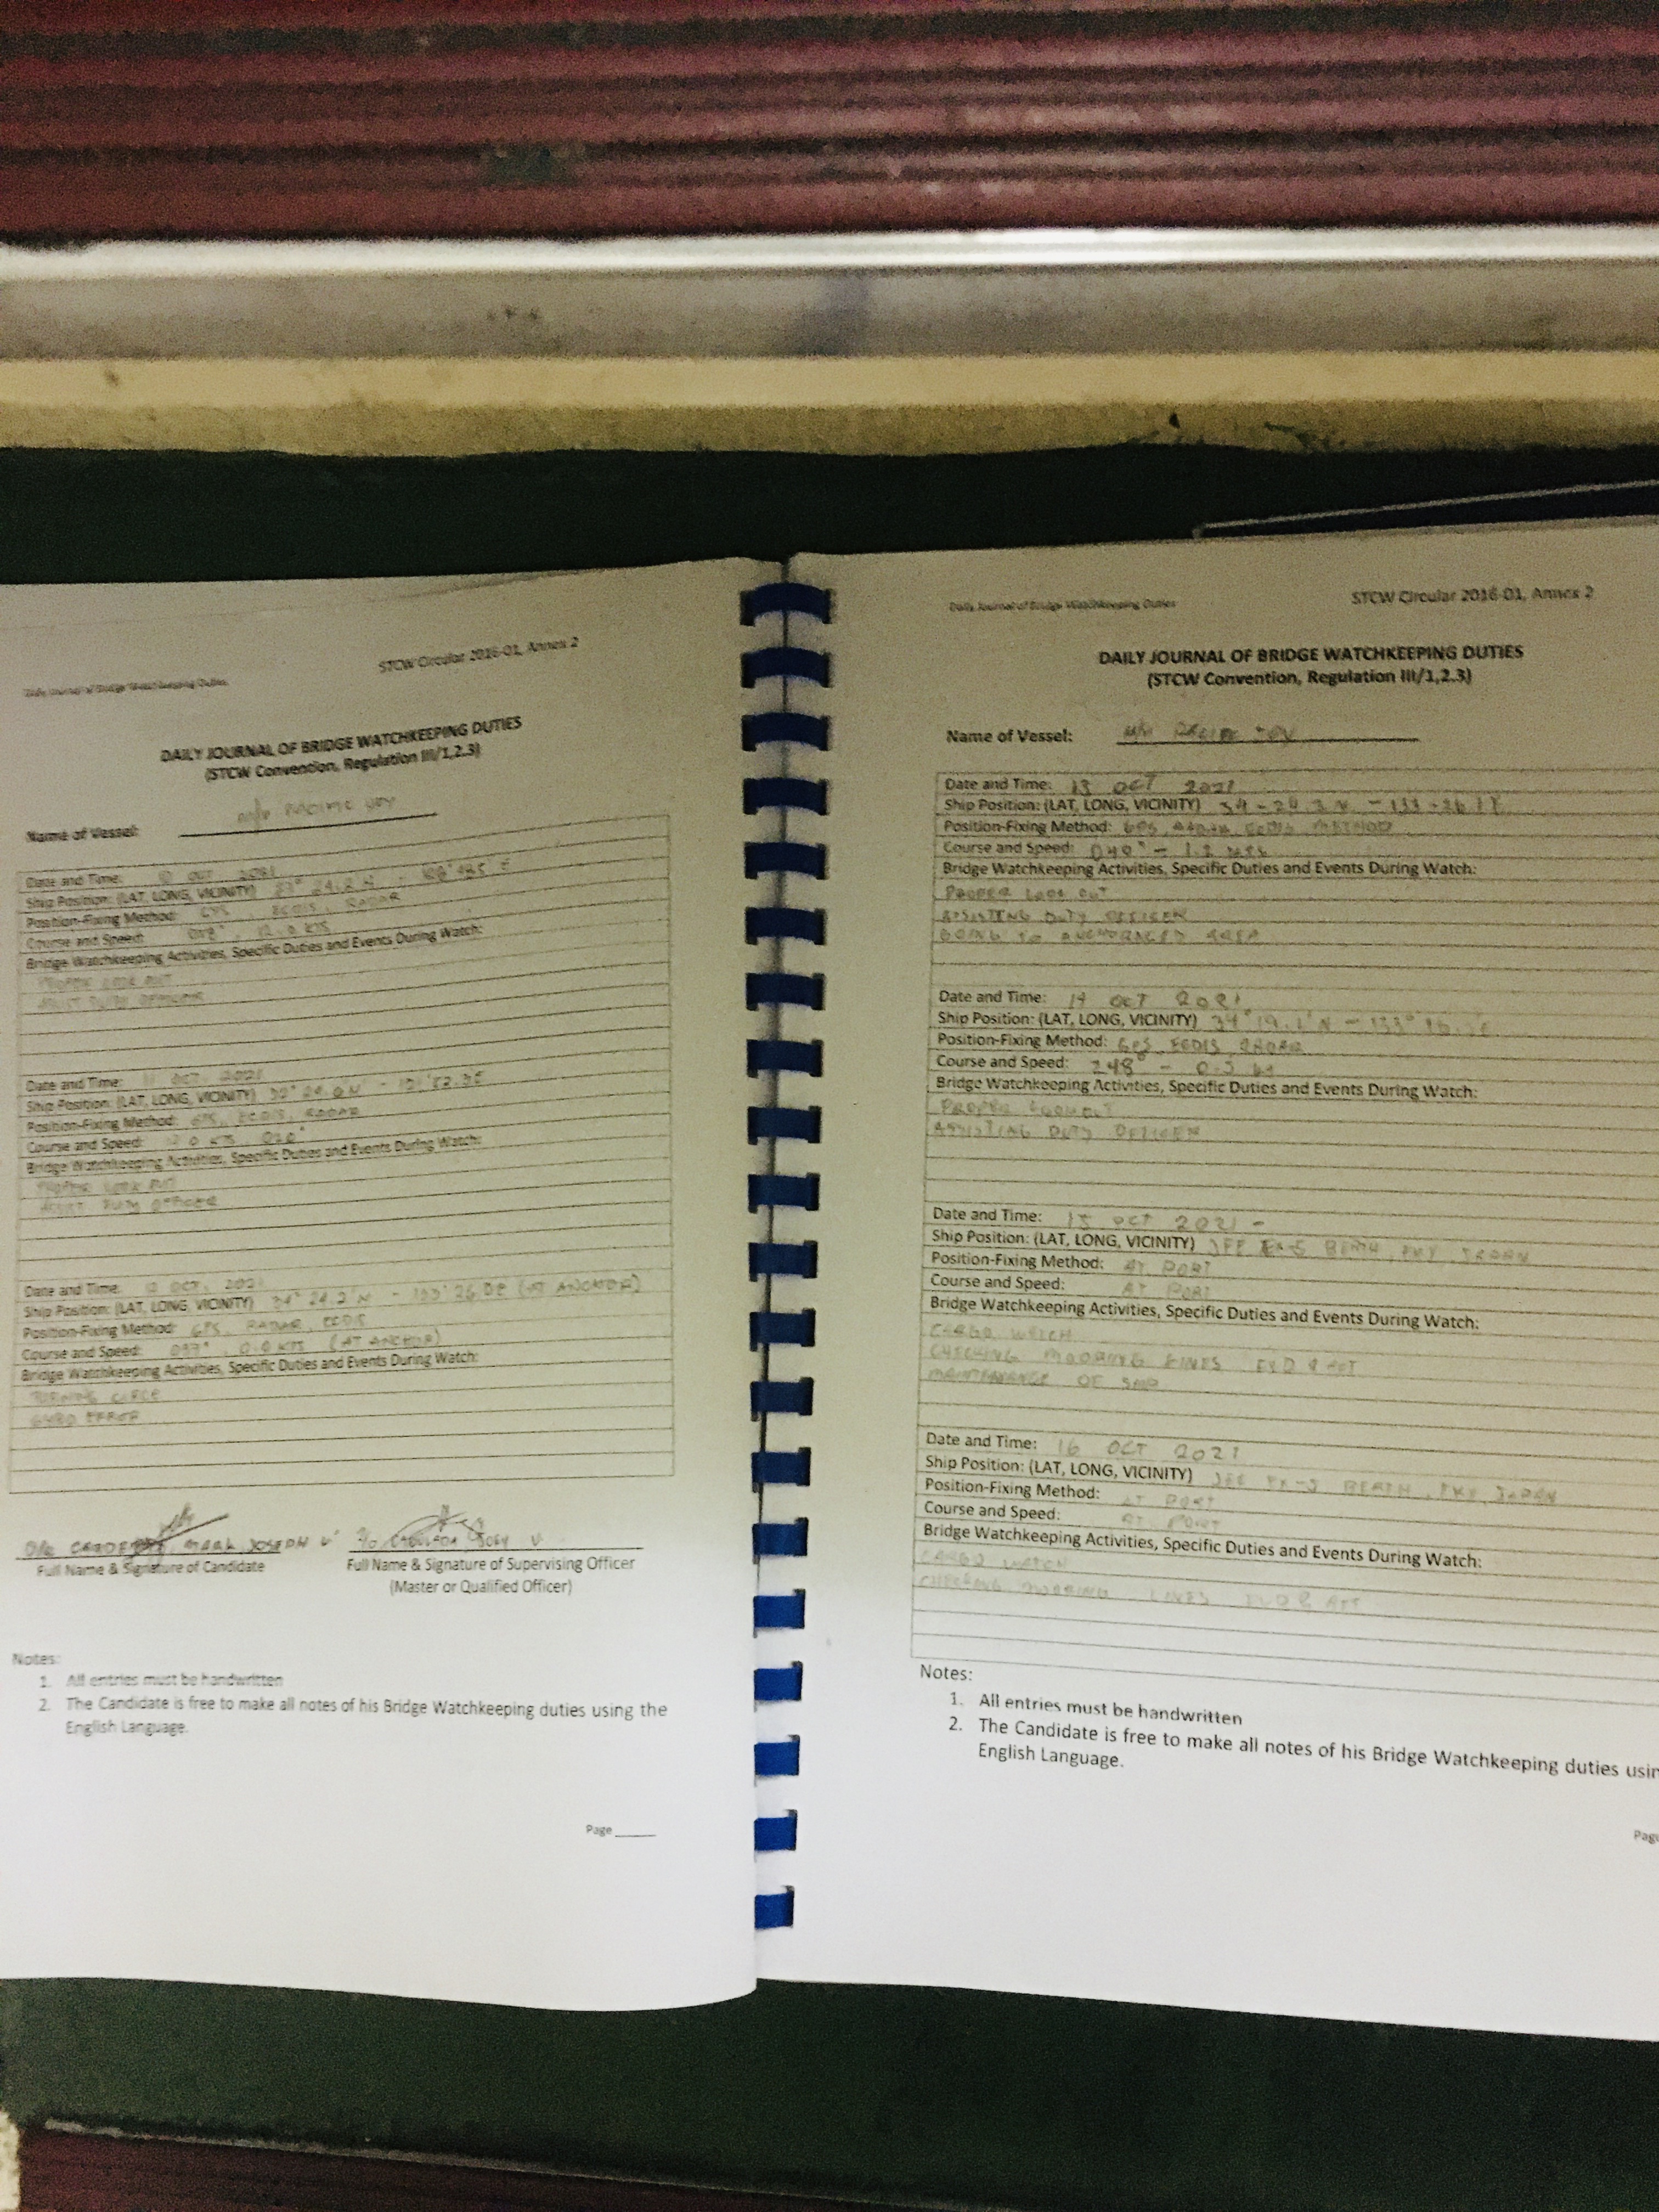 STCW Circular 2016-01, Annex 2
Daily Journal of Bridge Watchkeeping Duties
DAILY JOURNAL OF BRIDGE WATCHKEEPING DUTIES
(STCW Convention, Regulation III/1,2.3)
Name of Vessel: M/V PACIFIC JOY
Date and Time: OCT 2021
Ship Position: (LAT, LONG, VICINITY)
Position-Fixing Method: GPS, ECDIS, RADAR
Course and Speed: 12.0 KTS
Bridge Watchkeeping Activities, Specific Duties and Events During Watch:
PROPER LOOK OUT
ASSIST DUTY OFFICER
Date and Time: 11 OCT. 2021
Ship Position: (LAT, LONG, VICINITY)
Position-Fixing Method: GPS, ECDIS, RADAR
Course and Speed:
Bridge Watchkeeping Activities, Specific Duties and Events During Watch:
PROPER LOOK OUT
ASSIST DUTY OFFICER
Date and Time: OCT. 2021
Ship Position: (LAT, LONG, VICINITY) 34° 24.2'N - (AT ANCHOR)
Position-Fixing Method: GPS, RADAR, ECDIS
Course and Speed: 0.0 KTS (AT ANCHOR)
Bridge Watchkeeping Activities, Specific Duties and Events During Watch:
TURNING CIRCLE
GYRO ERROR
MARK JOSEPH V
Full Name & Signature of Candidate
Full Name & Signature of Supervising Officer
(Master or Qualified Officer)
Notes:
1. All entries must be handwritten
2. The Candidate is free to make all notes of his Bridge Watchkeeping duties using the
English Language.
Page
Daily Journal of Bridge Watchkeeping Duties
STCW Circular 2016-01, Annex 2
DAILY JOURNAL OF BRIDGE WATCHKEEPING DUTIES
(STCW Convention, Regulation III/1,2.3)
Name of Vessel: M/V PACIFIC JOY
Date and Time: 13 OCT 2021
Ship Position: (LAT, LONG, VICINITY)
Position-Fixing Method: GPS, RADAR, ECDIS METHOD
Course and Speed: 040° -
Bridge Watchkeeping Activities, Specific Duties and Events During Watch:
PROPER LOOK OUT
ASSISTING DUTY OFFICER
GOING TO ANCHORAGED AREA
Date and Time: 14 OCT 2021
Ship Position: (LAT, LONG, VICINITY) 34°19.1'N -
Position-Fixing Method: GPS, ECDIS, RADAR
Course and Speed: 248° -
Bridge Watchkeeping Activities, Specific Duties and Events During Watch:
PROPER LOOKOUT
ASSISTING DUTY OFFICER
Date and Time: 15 OCT 2021 -
Ship Position: (LAT, LONG, VICINITY) BERTH, JAPAN
Position-Fixing Method: AT PORT
Course and Speed: AT PORT
Bridge Watchkeeping Activities, Specific Duties and Events During Watch:
CARGO WATCH
CHECKING MOORING LINES FWD & AFT
MAINTENANCE OF SHIP
Date and Time: 16 OCT 2021
Ship Position: (LAT, LONG, VICINITY) BERTH, JAPAN
Position-Fixing Method: AT PORT
Course and Speed: AT PORT
Bridge Watchkeeping Activities, Specific Duties and Events During Watch:
CARGO WATCH
CHECKING MOORING LINES FWD & AFT
Notes:
1. All entries must be handwritten
2. The Candidate is free to make all notes of his Bridge Watchkeeping duties usin
English Language.
Page